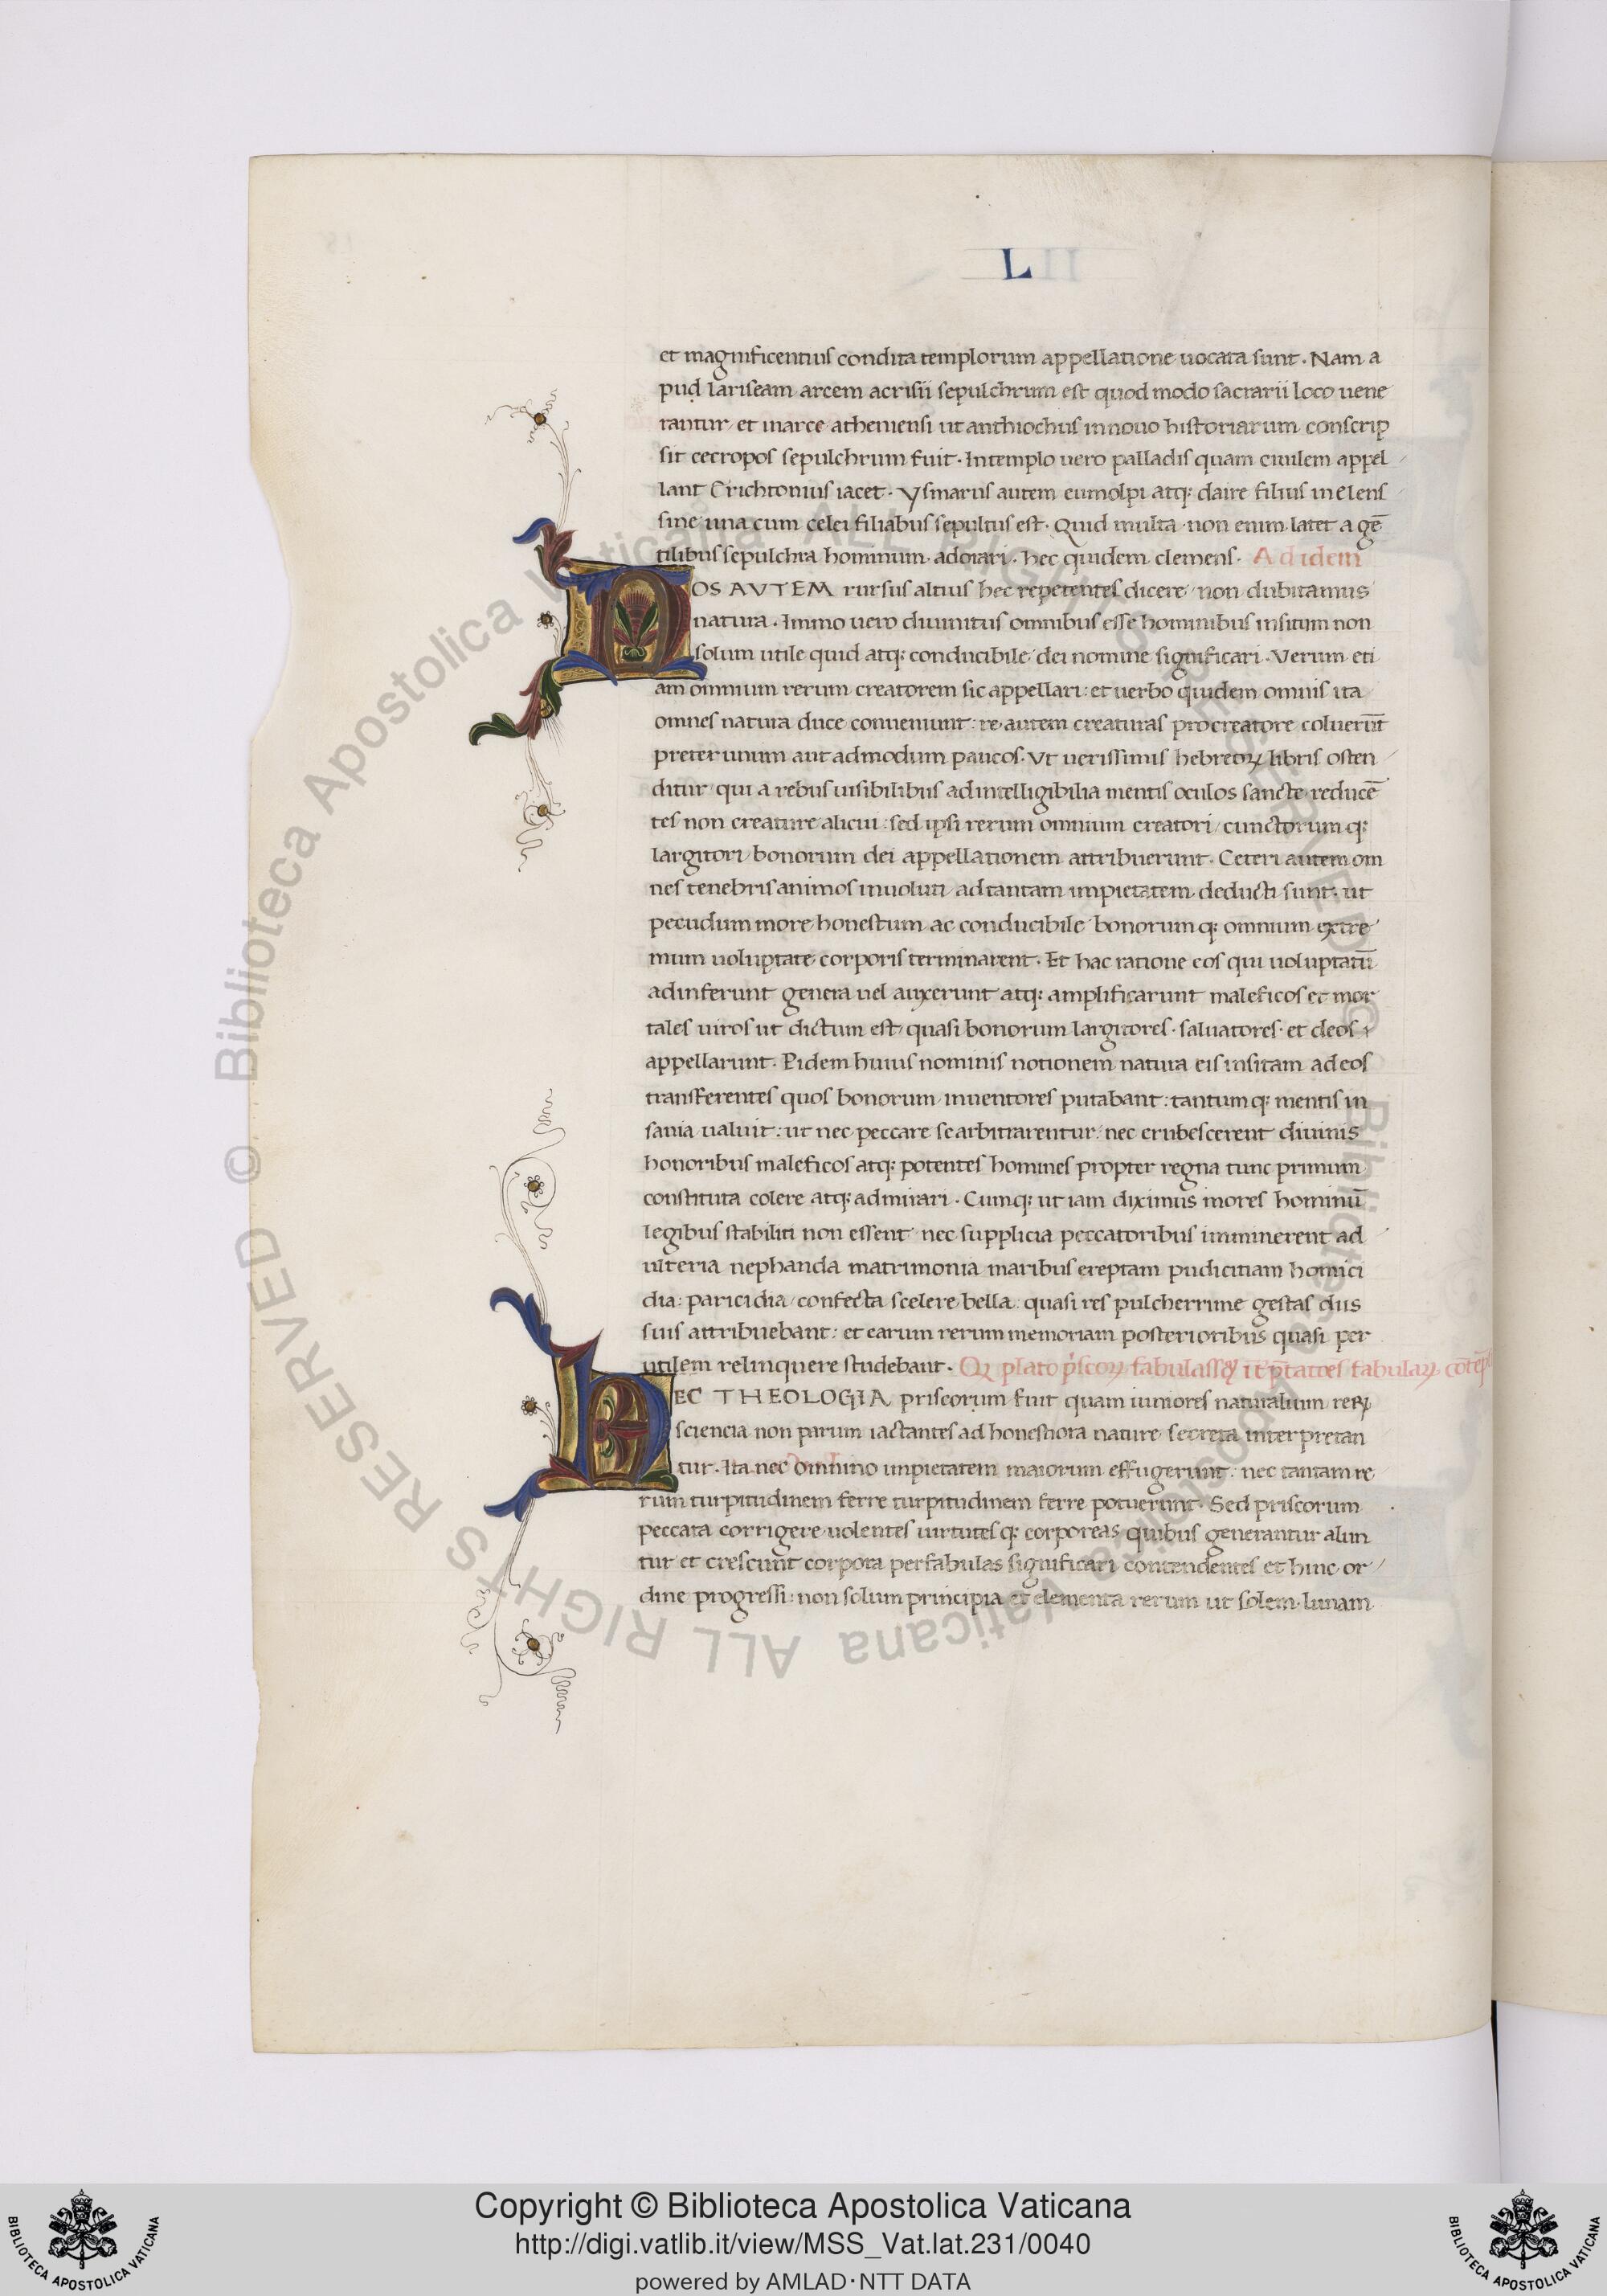 L
et magnificentius condita templorum appellatione uocata sunt. Nam a
pud lariseam arcem acrisii sepulchrum est quod modo sacrarii loco uene
rantur et in arce atheniensi ut anthiochus in nono historiarum conscrip
sit cecropos sepulchrum fuit. In templo uero palladis quam ciuilem appel
lant Erichtonius iacet. ysmarus autem eumolpi atq; daire filius in elens
sine una cum celei filiabus sepultus est. Quid multa non enim latet a gē
tilibus sepulchra hominum adorari. hec quidem clemens. Ad idem
NOS AVTEM rursus altius hec repetentes dicere non dubitamus
natura. Immo uero diuinitus omnibus esse hominibus insitum non
solum utile quid atq; conducibile dei nomine significari. Verum eti
am omnium rerum creatorem sic appellari: et uerbo quidem omnis ita
omnes natura duce conueniunt: re autem creaturas pro creatore coluerūt
preter unum aut admodum paucos. Vt uerissimis hebreoꝝ libris osten
ditur qui a rebus uisibilibus ad intelligibilia mentis oculos sancte reducē
tes non creature alicui: sed ipsi rerum omnium creatori cunctorum q;
largitori bonorum dei appellationem attribuerunt. Ceteri autem om
nes tenebris animos inuoluti ad tantam impietatem deducti sunt. ut
pecudum more honestum ac conducibile bonorum q; omnium extre
mum uoluptate corporis terminarent. Et hac ratione eos qui uoluptatū
adinferunt genera uel auxerunt atq; amplificarunt maleficos et mor
tales uiros ut dictum est quasi bonorum largitores. saluatores. et deos
appellarunt. Eidem huius nominis notionem natura eis insitam ad eos
transferentes quos bonorum inuentores putabant: tantum q; mentis in
sania ualuit: ut nec peccare se arbitrarentur: nec erubescerent diuinis
honoribus maleficos atq; potentes homines propter regna tunc primum
constituta colere atq; admirari. Cumq; ut iam diximus mores hominū
legibus stabiliti non essent nec supplicia peccatoribus imminerent ad
ulteria nephanda matrimonia maribus ereptam pudicitiam homici
dia: paricidia confecta scelere bella: quasi res pulcherrime gestas diis
suis attribuebant: et earum rerum memoriam posterioribus quasi per
utilem relinquere studebant. Qꝫ plato pͥscoꝝ fabulas
HEC THEOLOGIA priscorum fuit quam iuniores naturalium reꝝ
sciencia non parum iactantes ad honestiora nature secreta interpretan
tur. Ita nec omnino impietatem maiorum effugerunt: nec tantam re
rum turpitudinem ferre turpitudinem ferre potuerunt. Sed priscorum
peccata corrigere uolentes uirtutes q; corporeas quibus generantur alun
tur et crescunt corpora per fabulas significari contendentes et hinc or
dine progressi: non solum principia et elementa rerum ut solem. lunam
© Biblioteca Apostolica Vaticana ALL RIGHTS RESERVED
Copyright © Biblioteca Apostolica Vaticana
http://digi.vatlib.it/view/MSS_Vat.lat.231/0040
powered by AMLAD·NTT DATA
BIBLIOTECA APOSTOLICA VATICANA
BIBLIOTECA APOSTOLICA VATICANA